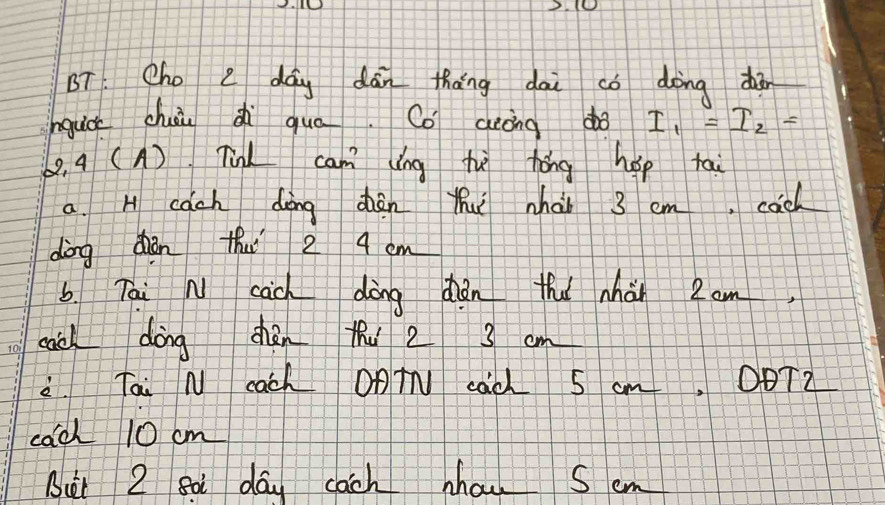 BT: Cho 2 dây dẫn thẳng dài có dòng điện
ngược chiều đi qua. Có cường độ I₁ = I₂ =
2,4 (A). Tính cảm ứng từ tổng hợp tại
a. M cách dòng điện thứ nhất 3 cm, cách
dòng điện thứ 2 4 cm
b. Tại N cách dòng điện thứ nhất 2 cm,
cách dòng điện thứ 2 3 cm
c. Tại N cách DĐTN cách 5 cm, DĐT2
cách 10 cm
Biết 2 sợi dây cách nhau 5 cm